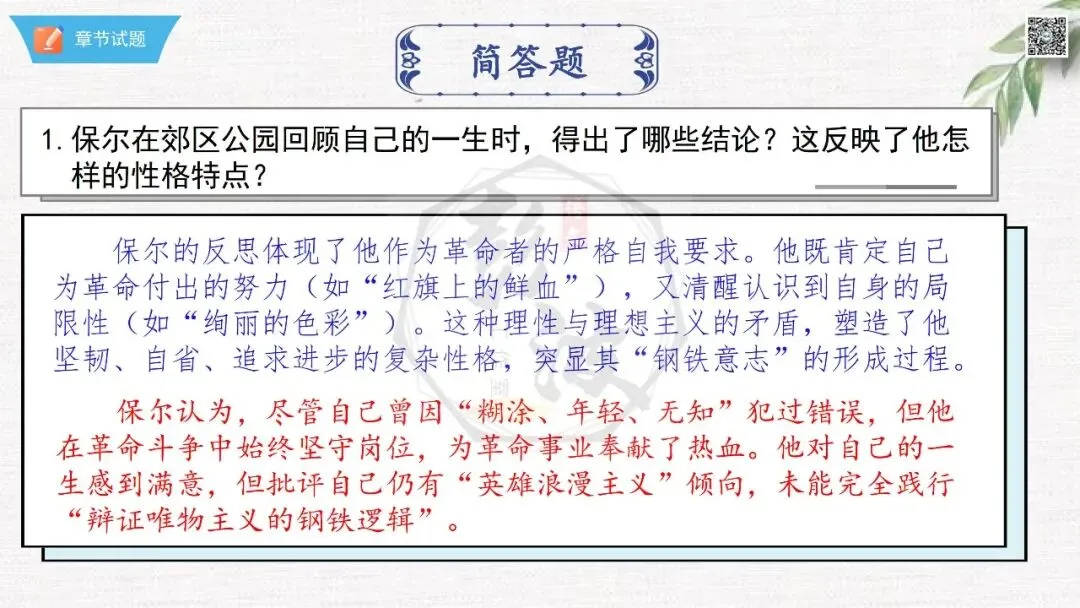 章节试题
简答题
1. 保尔在郊区公园回顾自己的一生时，得出了哪些结论？这反映了他怎
样的性格特点？
保尔的反思体现了他作为革命者的严格自我要求。他既肯定自己
为革命付出的努力（如“红旗上的鲜血”），又清醒认识到自身的局
限性（如“绚丽的色彩”）。这种理性与理想主义的矛盾，塑造了他
坚韧、自省、追求进步的复杂性格，突显其“钢铁意志”的形成过程。
保尔认为，尽管自己曾因“糊涂、年轻、无知”犯过错误，但他
在革命斗争中始终坚守岗位，为革命事业奉献了热血。他对自己的一
生感到满意，但批评自己仍有“英雄浪漫主义”倾向，未能完全践行
“辩证唯物主义的钢铁逻辑”。